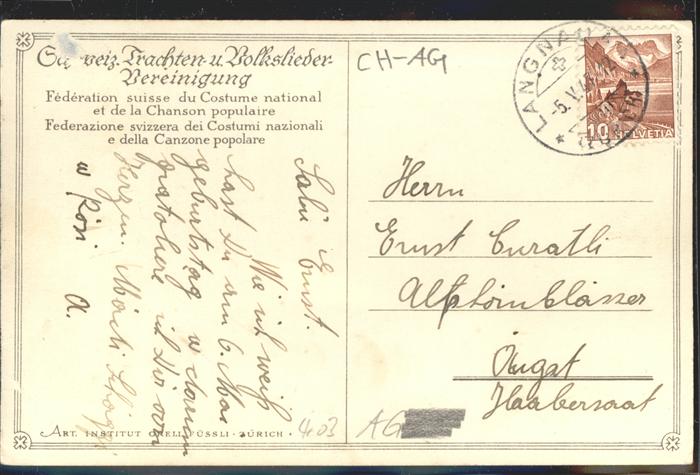 Schweiz. Trachten- u. Volkslieder-
Vereinigung
Fédération suisse du Costume national
et de la Chanson populaire
Federazione svizzera dei Costumi nazionali
e della Canzone popolare
Salü
Ernst.
Wie ich weiß
hast Du am 6. Mai
geburtstag u darum
gratuliere ich Dir von
Herzen.
u Rösi
A.
ART. INSTITUT ORELL FÜSSLI · ZÜRICH ·
403
CH-AG
LANGNAU
-5.V.
10 HELVETIA
Herrn
Ernst Curatli
Alphornbläser
Haabersaat
AG